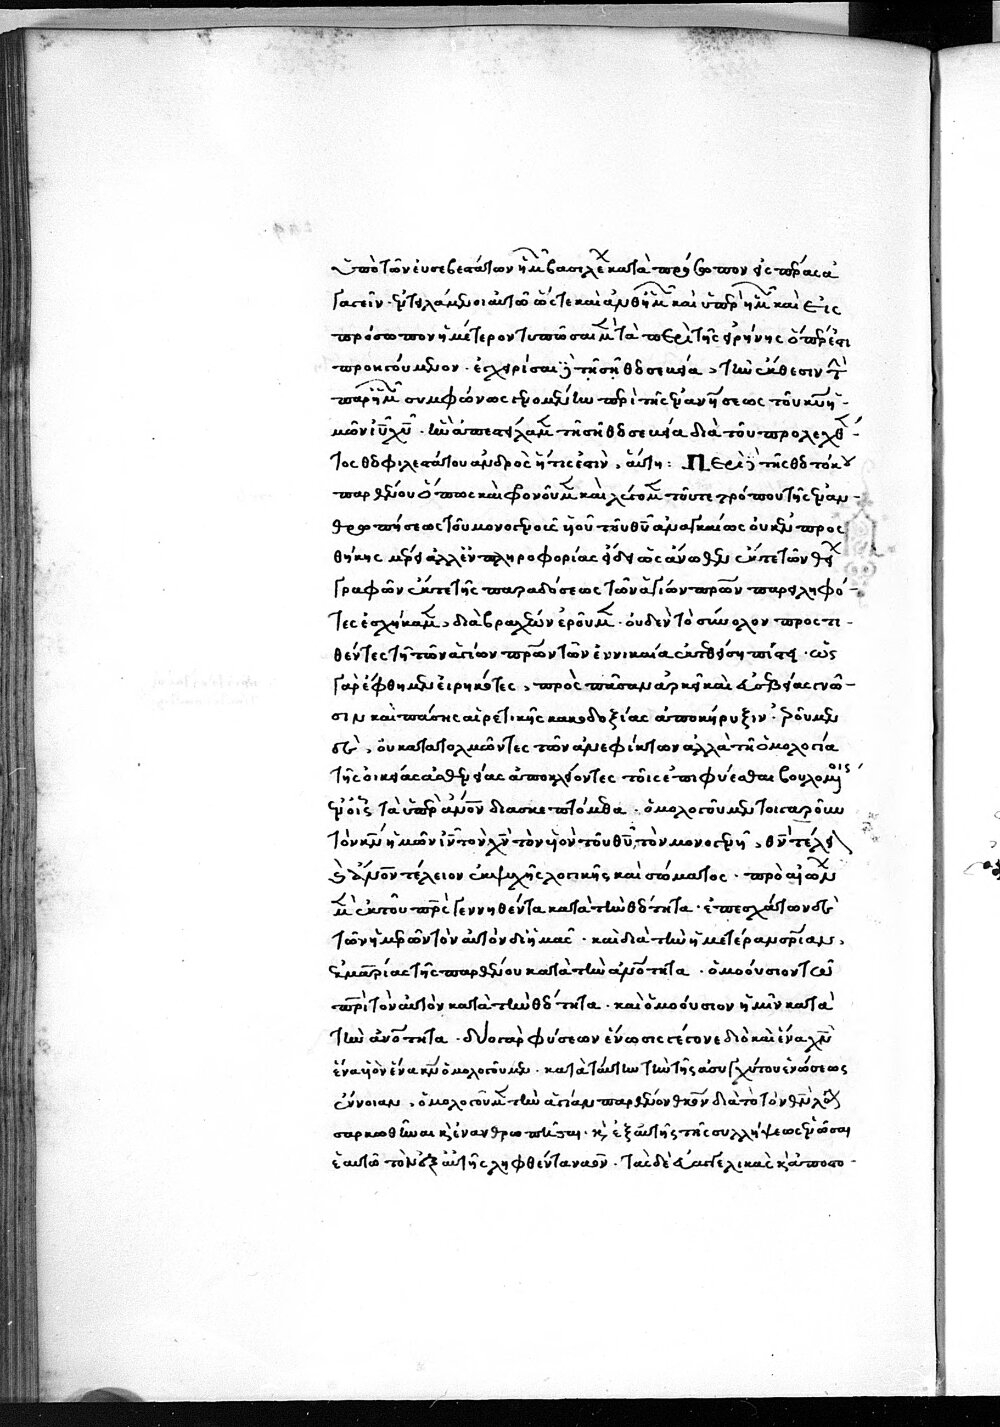 ὑπὸ τῶν εὐσεβεστάτων ἡμῶν βασιλέων κατὰ πρόσωπον εἰς πέρας ἀ
γαγεῖν. ἐντειλάμενοι αὐτῶ ὥστε καὶ ἀνθ ἡμῶν καὶ ὑπὲρ ἡμῶν καὶ εἰς
πρόσωπον ἡμέτερον τυπῶσαι μετὰ τὰ περὶ τῆς εἰρήνης ὅπέρ ἐστι
προηγούμενον. ἐγχειρίσαι τῆ σῆ θεοσεβεία, τὴν ἔκθεσιν τὴν
παρ ἡμῶν συμφώνως γενομένην περὶ τῆς ἐνανθρωπήσεως τοῦ κυρίου ἡ-
μῶν ἰυ χυ. ἣν ἀπεστείλαμεν τῆ σῆ θεοσεβεία διὰ τοῦ προλεχθέν-
τος θεοφιλεστάτου ἀνδρὸς ἥτις ἐστὶν, αὕτη: Περὶ τῆς θεοτόκου
παρθένου ὅπως καὶ φρονοῦμεν καὶ λέγομεν τοῦ τε τρόπου τῆς ἐναν-
θρωπήσεως τοῦ μονογενοῦς υἱοῦ τοῦ θυ ἀναγκαίως οὐκ ἐν προς
θήκης μέρει ἀλλ ἐν πληροφορίας εἴδει ὡς ἄνωθεν ἔκ τε τῶν θείων
γραφῶν ἔκ τε τῆς παραδόσεως τῶν ἁγίων πρων παρειληφό-
τες ἐσχήκαμεν, διὰ βραχέων ἐροῦμεν. οὐδὲν τὸ σύνολον προστι-
θέντες τῆ τῶν ἁγίων πρων τῶν ἐν νικαία ἐκτεθείση πίστει. ὡς
γὰρ ἔφθημεν εἰρηκότες, πρὸς πᾶσαν ἀρκεῖ καὶ εὐσεβείας γνῶ-
σιν καὶ πάσης αἱρετικῆς κακοδοξίας ἀποκήρυξιν. ἐροῦμεν
δὲ, οὐ κατατολμῶντες τῶν ἀνεφίκτων ἀλλὰ τῆ ὁμολογία
τῆς οἰκείας ἀσθενείας ἀποκλείοντες τοῖς ἐπιφύεσθαι βουλομένοις
ἐν οἷς τὰ ὑπὲρ ἄνον διασκεπτόμεθα. ὁμολογοῦμεν τοιγαροῦν
τὸν κν ἡμῶν ἰν τὸν χν τὸν υἱὸν τοῦ θυ, τὸν μονογενῆ, θν τέλειον
καὶ ἄνον τέλειον ἐκ ψυχῆς λογικῆς καὶ σώματος. πρὸ αἰώνων
μὲν ἐκ τοῦ πρς γεννηθέντα κατὰ τὴν θεότητα. ἐπ ἐσχάτων δὲ
τῶν ἡμερῶν τὸν αὐτὸν δι ἡμᾶς. καὶ διὰ τὴν ἡμετέραν σριαν,
ἐκ μαρίας τῆς παρθένου κατὰ τὴν ἀνότητα. ὁμοούσιον τῶ
πρι τὸν αὐτὸν κατὰ τὴν θεότητα. καὶ ὁμοούσιον ἡμῖν κατὰ
τὴν ἀνότητα. δύο γὰρ φύσεων ἕνωσις γέγονε διὸ καὶ ἕνα χν
ἕνα υἱὸν ἕνα κν ὁμολογοῦμεν. κατὰ ταύτην τὴν τῆς ἀσυγχύτου ἑνώσεως
ἔννοιαν, ὁμολογοῦμεν τὴν ἁγίαν παρθένον θεοτόκον διὰ τὸ τὸν θν λόγον
σαρκωθῆναι κ ἐνανθρωπῆσαι. κ ἐξ αὐτῆς τῆς συλλήψεως ἑνῶσαι
ἑαυτῶ τὸν ἐξ αὐτῆς ληφθέντα ναόν. τὰς δὲ εὐαγγελικὰς κ ἀποστο-